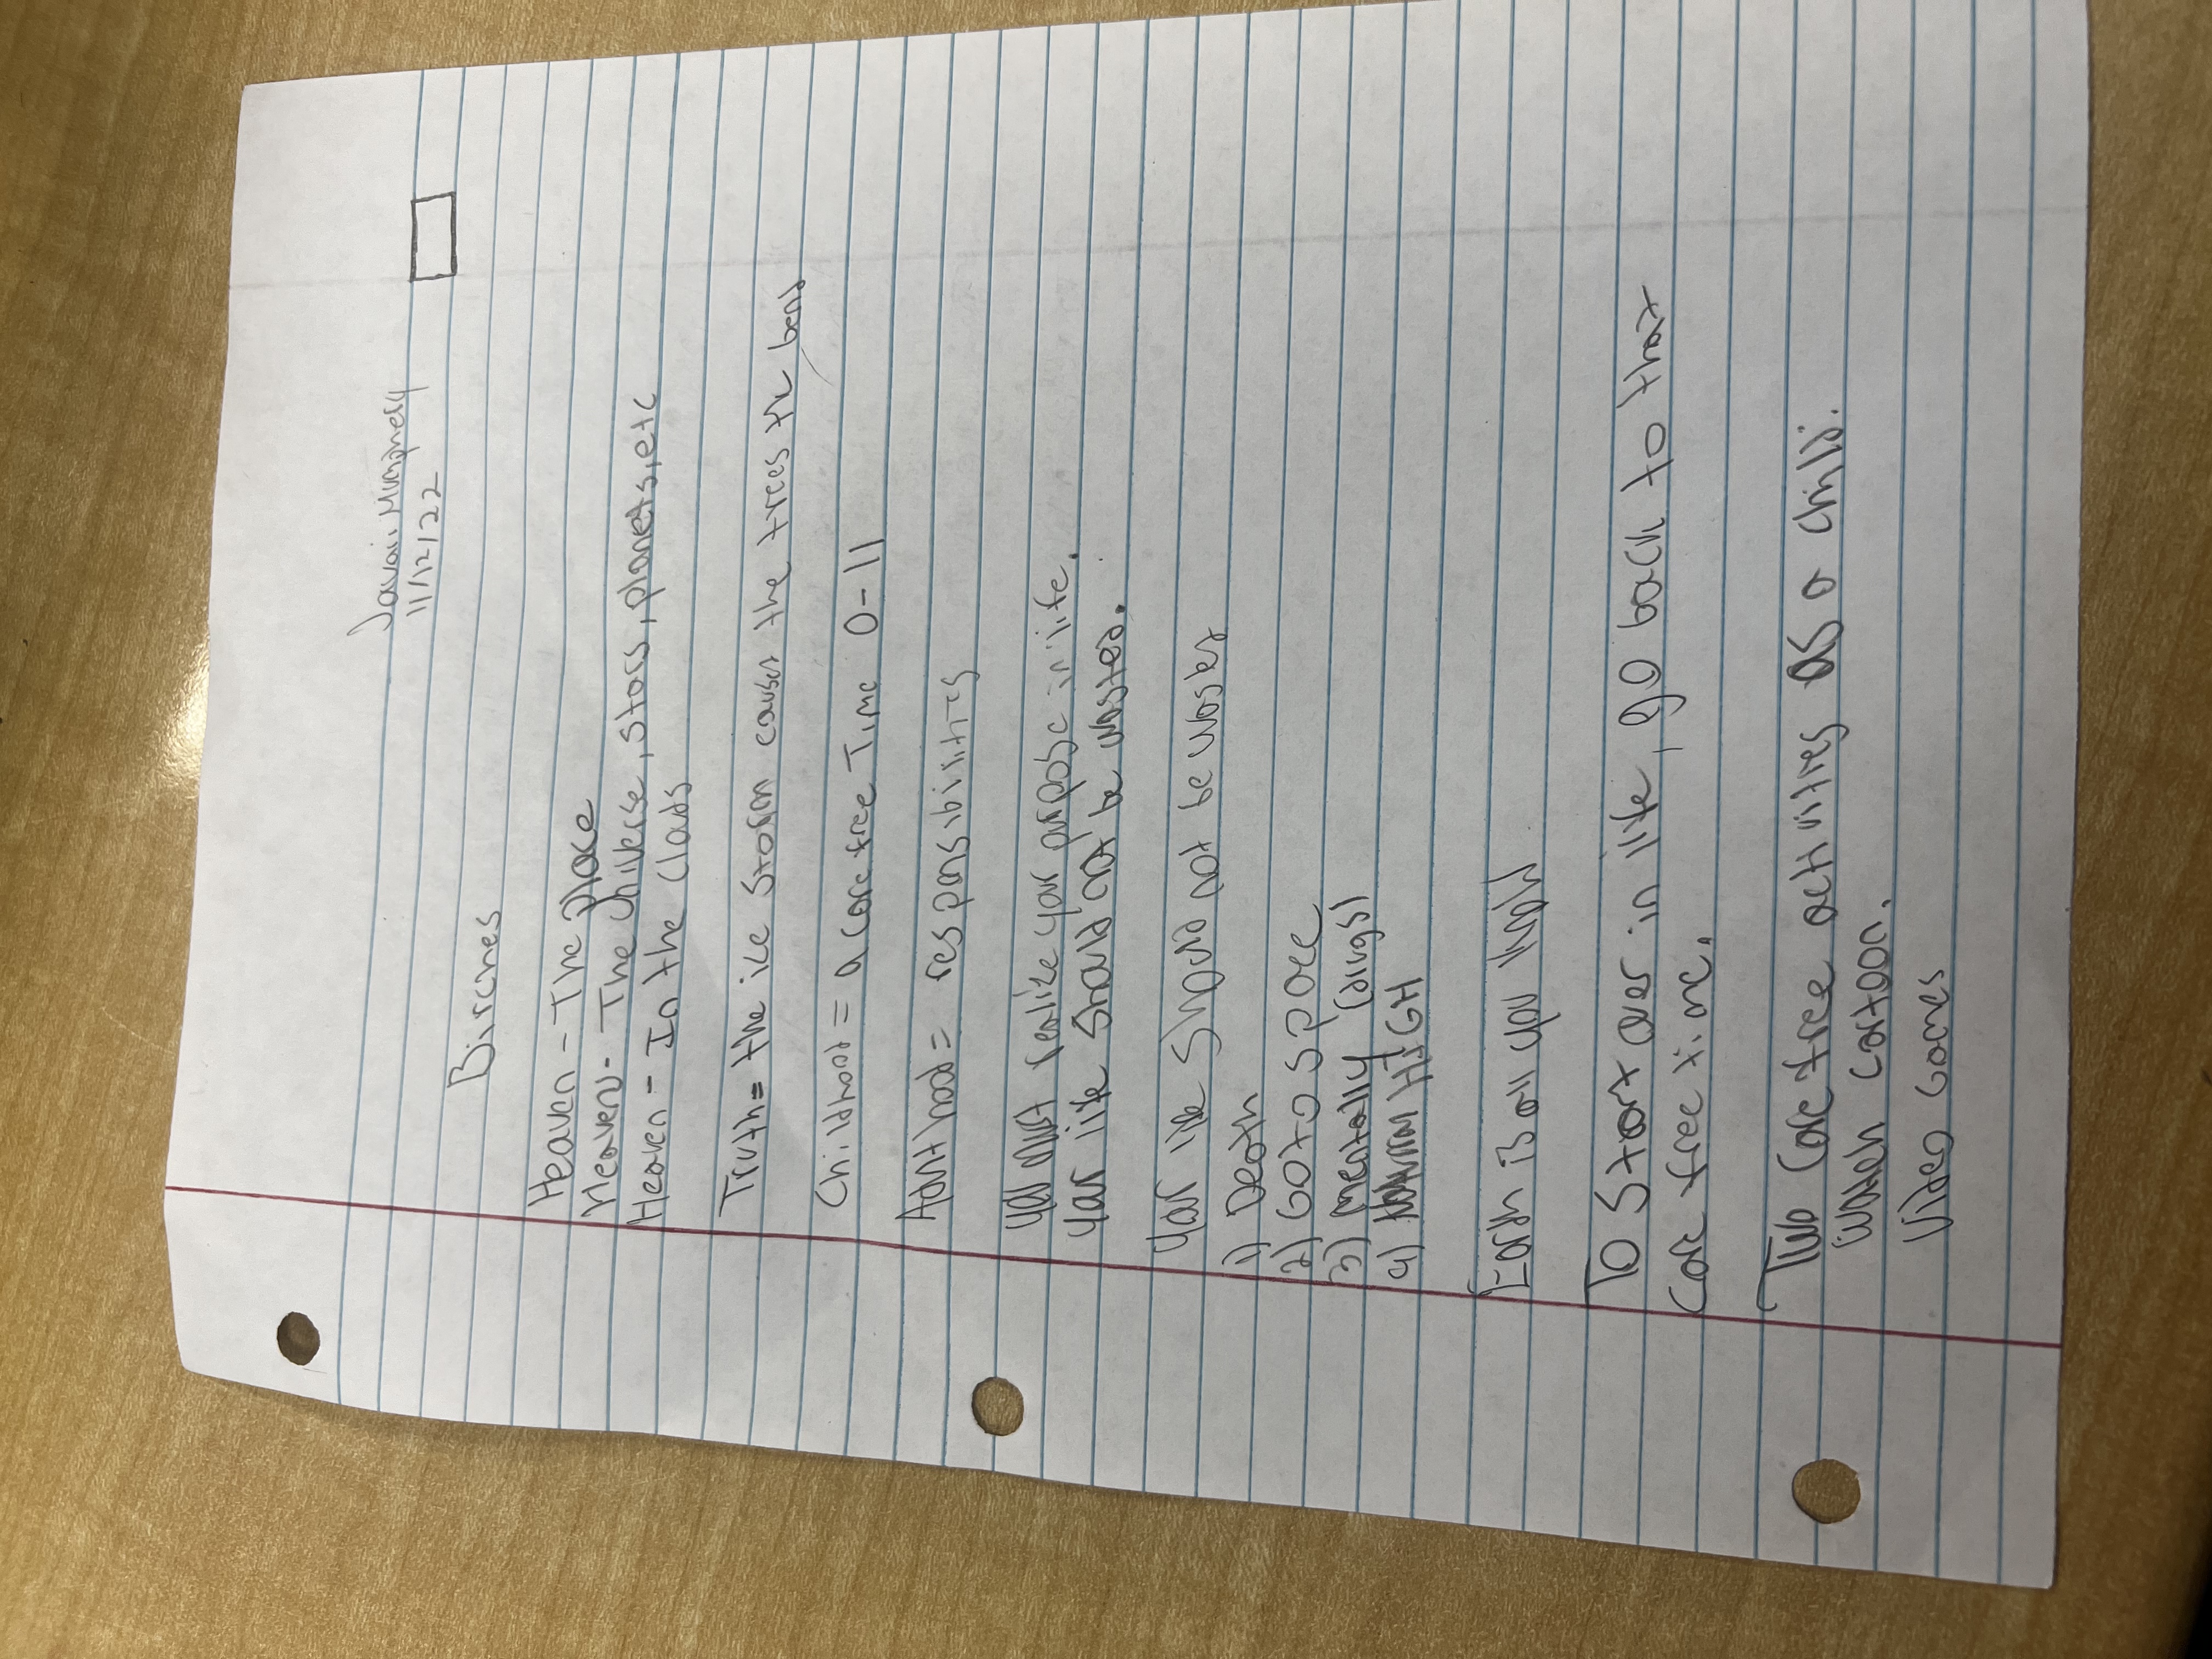 Javari
11/12/22
Birches
Heaven - The place
Heaven - The Universe, stars, planets, etc
Heaven - In the Clouds
Truth = the ice Storm causes the trees to bend
Childhood = a care free Time 0-11
Adulthood = responsibilities
You must realize your purpose in life.
Your life should not be wasted.
Your life should not be wasted
1) Death
2) Go to space
3) mentally (drugs)
4) HIGH
Earth is all you know
To start over in life, go back to that
care free time.
Two care free activities as a child.
Watch cartoon.
Video Games